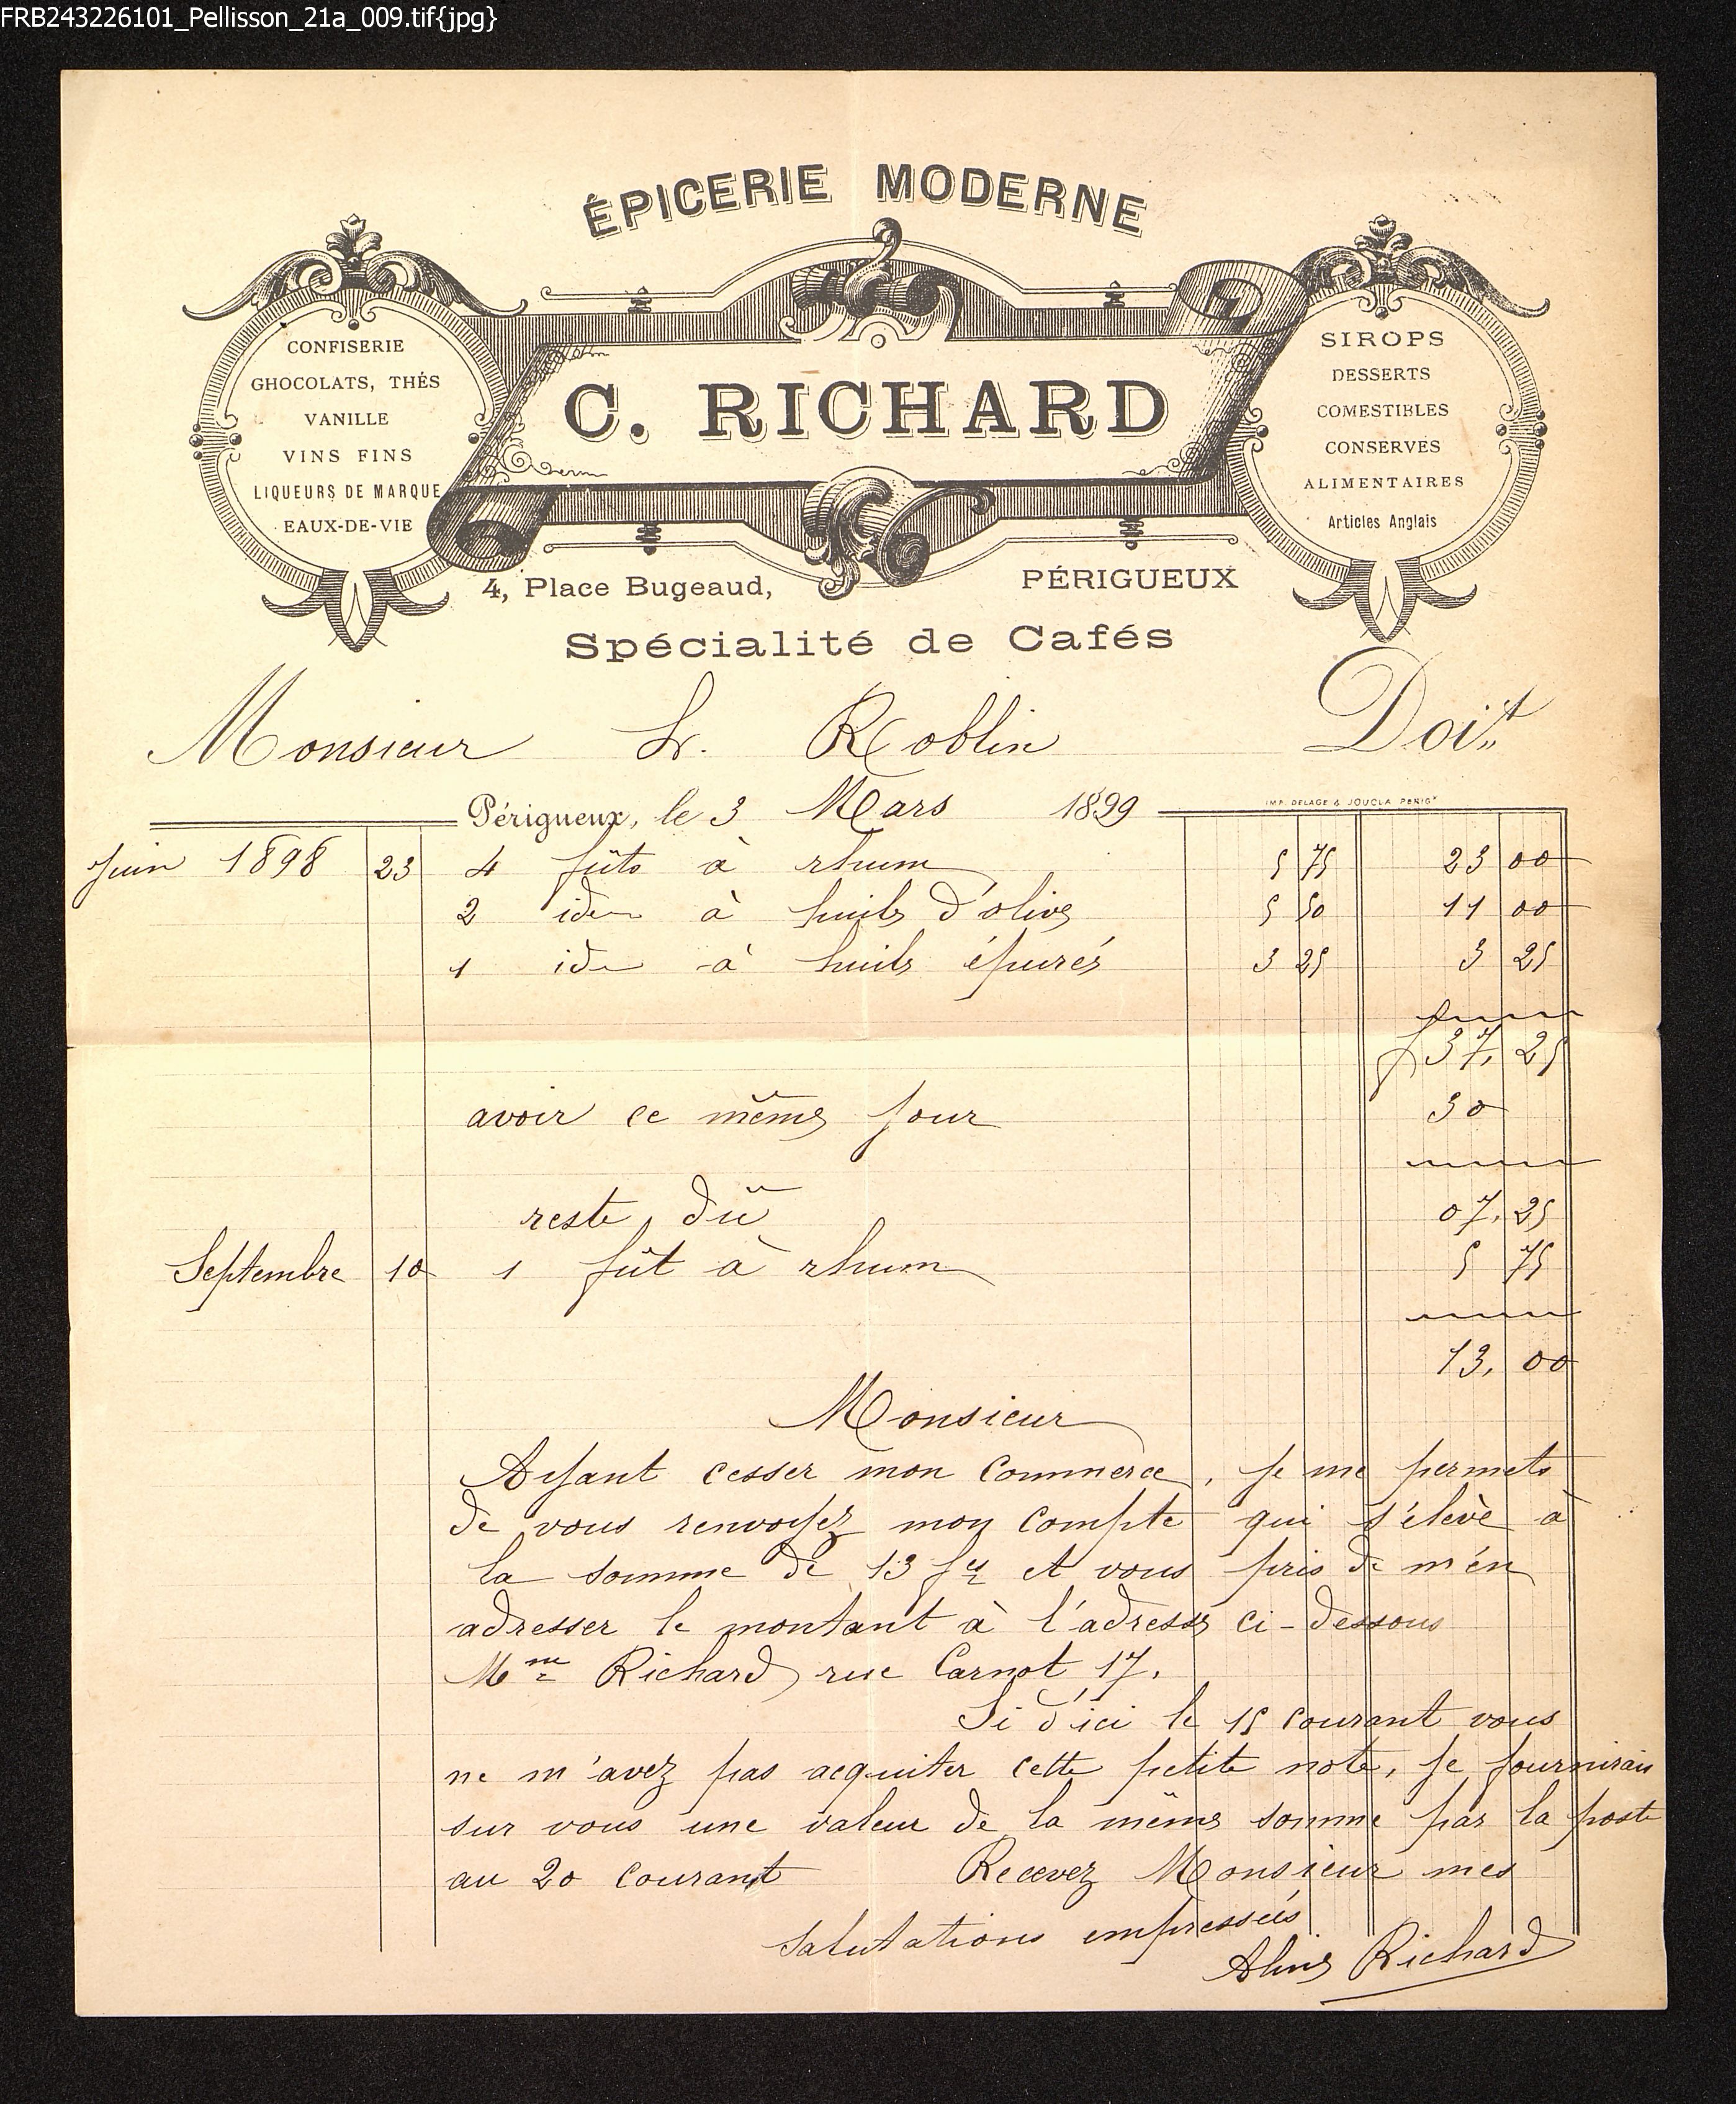 FRB243226101_Pellisson_21a_009.tif{jpg}
ÉPICERIE MODERNE
C. RICHARD
CONFISERIE
GHOCOLATS, THÉS
VANILLE
VINS FINS
LIQUEURS DE MARQUE
EAUX-DE-VIE
SIROPS
DESSERTS
COMESTIBLES
CONSERVES
ALIMENTAIRES
Articles Anglais
4, Place Bugeaud, PÉRIGUEUX
Spécialité de Cafés
Monsieur Roblin Doit
Périgueux, le 3 Mars 1899
IMP. DELAGE & JOUCLA PÉRIGX
Juin 1898 23 4 fûts à rhum 5 75 23 00
2 idem à huile d'olive 5 50 11 00
1 idem à huile épurée 3 25 3 25
f 37, 25
avoir ce même jour 30
reste dû 07, 25
Septembre 10 1 fût à rhum 5 75
13, 00
Monsieur
Ayant cesser mon commerce, je me permets
de vous renvoyez mon compte qui s'élève à
la somme de 13 frs et vous prie de m'en
adresser le montant à l'adresse ci-dessous
Mme Richard rue Carnot 17.
Si d'ici le 15 courant vous
ne m'avez pas acquiter cette petite note, je fournirais
sur vous une valeur de la même somme par la poste
au 20 courant Recevez Monsieur mes
salutations empressées
Aline Richard